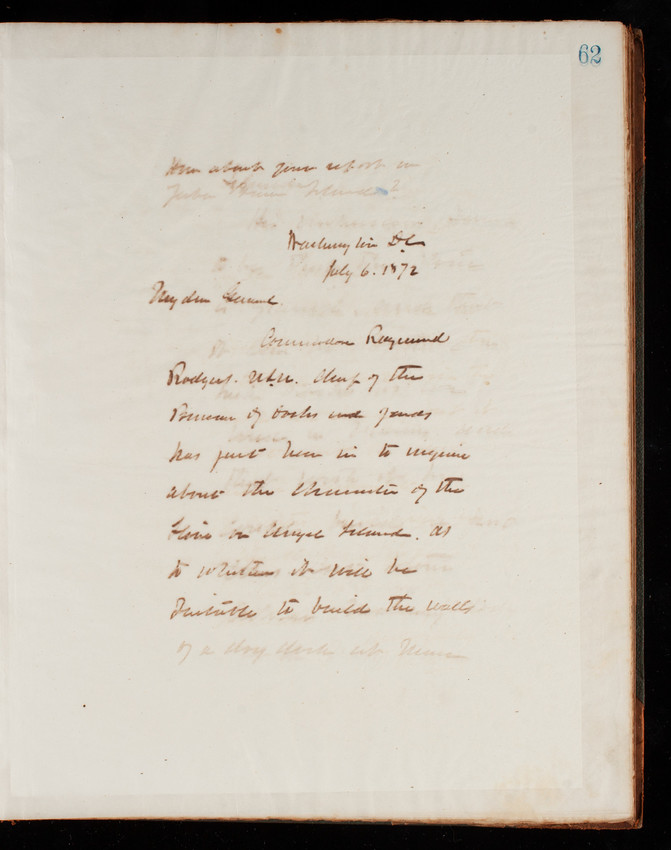 62
How about your report on
Yerba Buena Island?
Washington DC
July 6. 1872
My dear General.
Commodore Raymond
Rodgers. U.S.N. Chief of the
Bureau of Docks and yards
has just been in to inquire
about the character of the
Stone on Angel Island. as
to whether it will be
suitable to build the walls
of a dry dock at Mare